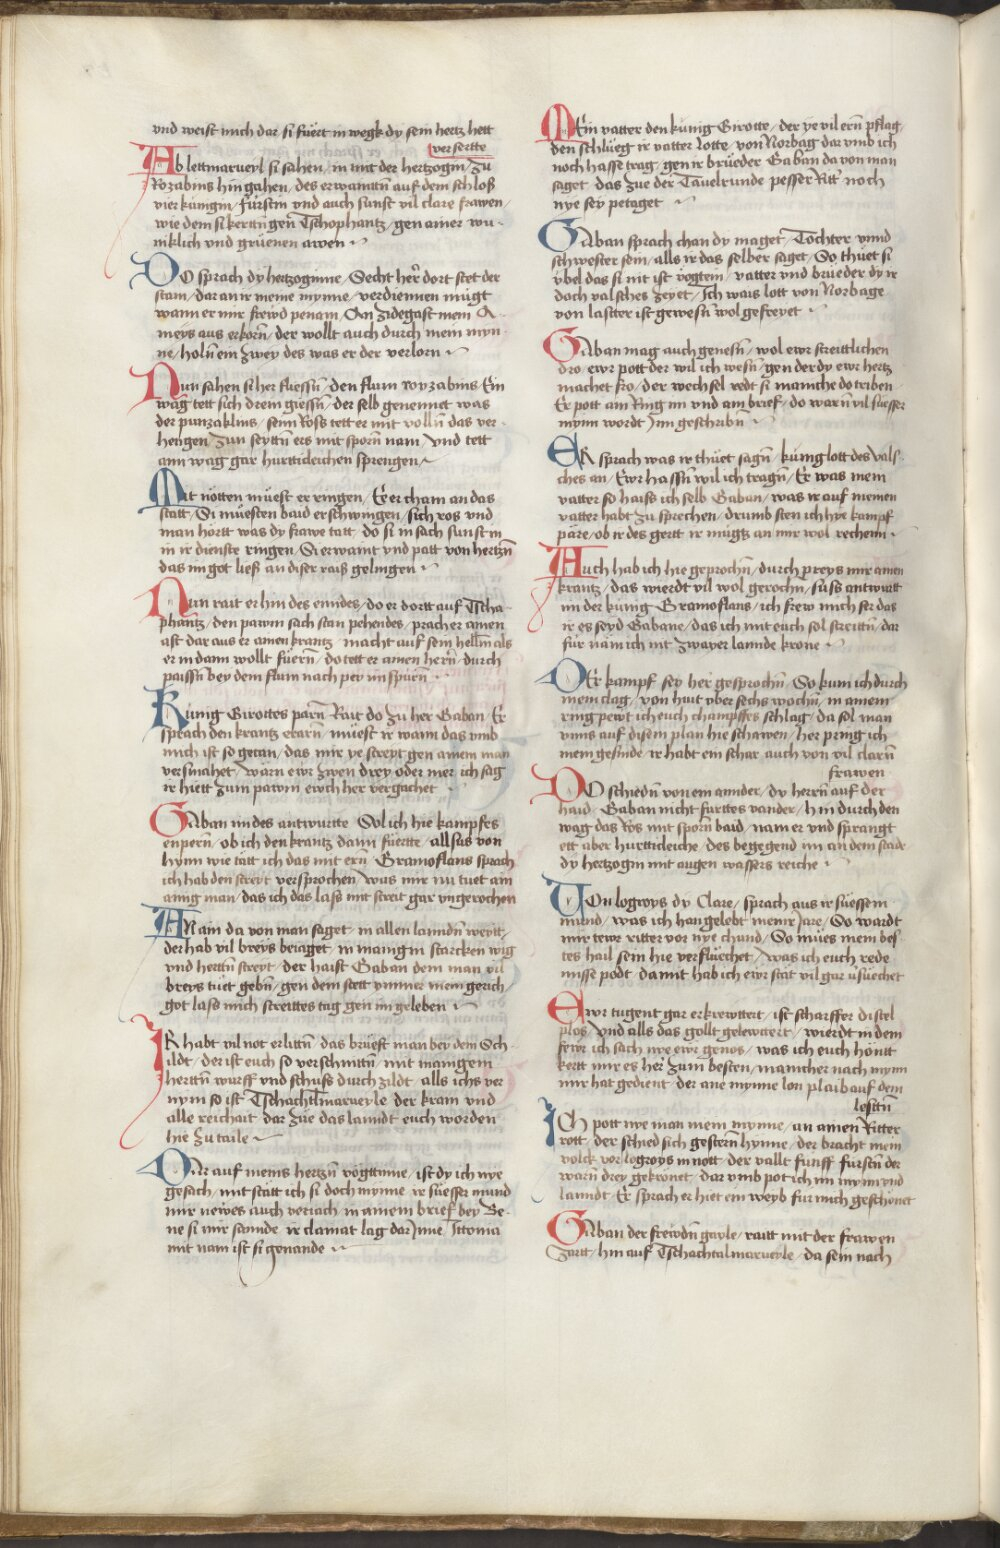 vnd weist mich dar si fuert in wegk dy sein hertz hett
versertte
Ab lettmarueyl si sahen / in mit der hertzogin / zu
Rozabins hin gahen / des erwamttn auf dem schloß
vier kunigin / fürstin vnd auch sunst vil clare frawen /
wie dem si kerttn gen Tschophantz / gen ainer wu-
niklich vnd grüenen awen
DO sprach dy hertzoginne / Secht her dort stet der
stam / dar an ir meine mynne / verdiennen mügt
wann er mir frewd penam / An zidegast mein A-
meys aus erkorn / der wollt auch durch mein myn-
ne / holn ein zwey des was er der verlorn
Nun sahen si her fliessn / den flum royzabins Ein
wag tett sich drein giessn / der selb genennet was
der punzaklins / seim Ross tett er mit volln das ver-
hengen / zun seyttn ers mit sporn nam / vnd tett
ann wag gar hurttideichen sprengen /
Mit nötten müest er ringen / Ee er cham an das
statt / Si müesten baid erschwingen / sich ros vnd
man hörtt was dy frawe tatt / do si in sach sunst in
in ir dienste ringen / Si erwamt vnd patt von hertzn
das im got ließ an diser raiß gelingen
Nun rait er hin des enndes / do er dortt auf Tscha-
phantz / den pawm sach stan pehendes / prach er amen
ast dar aus er amen krantz / macht auf sein hellm als
er in dann wollt füern / do tett er amen hern / durch
paissn bey dem flum nach per im spürn
Kunig Girottes parn Rait do zu her Gaban / Er
sprach den krantz ecarn / müest ir wann das vmb
mich ist so getan / das mir ye streyt gen amem man
versmahet / wärn ewr zwen drey oder mer ich sag
ir hiett zum pawm ewch her vergachet
Gaban im des antwurtte Sol ich hie kampfes
enpern / ob ich den krantz dann füertte / all sus von
hynn wie tätt ich das mit ern / Gramoflans sprach
ich hab den streyt versprochen / was mir nu tuet ain
ainig man / das ich das lass mit streit gar vngerochen
AN ain da von man saget / in allen lanndn weytt /
der hab vil breys beiaget / in manigm starcken wig
vnd herttn streyt / der haist Gaban dem man vil
breys tuet gebn / gen dem stett ymmer mein gerich /
got lass mich streittes tag gen im geleben
IR habt vil not erlittn / das brüeft man bey dem Sch-
ildt / der ist euch so verschnittn / mit manigem
herttn wurff vnd schuss durch zildt / alls ichs ver
nym so ist Tschachtlmarueyle der kram vnd
alle reichait dar zue das lanndt euch worden
hie zu taile
Dar auf meins hertzn vögttinne / ist dy ich nye
gesach / mit statt ich si doch mynne ir süesser mund
mir newes auch veriach / in amem brief bey Be-
ne si mir sannde ir clamat lag dar Jnne / Ittoma
mit nam ist si genande
MEin vatter den kunig Girotte / der ye vil ern pflag /
den schlueg ir vatter Lotte / von Norbag dar vmb ich
noch hasse trag / gen ir brueder Gaban da von man
saget das zue der Tauelrunde pesser Ritt noch
nye sey petaget
GAban sprach chan dy maget / Tochter vnnd
schwester sein / alls ir das selber saget / So thuet si
vbel das si nit ist vogtein / vatter vnd brueder dy ir
doch valsches zeyet / Ich wais lott von Norbage
von laster ist gewesn wol gefreyet
GAban mag auch genesn / wol ewr streittlichen
dro / ewr pott der wil ich wesn / gen der dy ewr hertz
machet fro / der wechsel redt si manche do triben /
Er pott am Ring im vnd am brief / do warn vil süesser
mynn wordt Jnn geschribn
ER sprach was ir thuet sagn / kunig lott des vals-
ches an / Ewr hassn wil ich tragn / Er was mein
vatter so haiss ich selb Gaban / was ir auf meinen
vatter habt zu sprechen / drumb sten ich hye kampf
pare / ob ir des gertt ir mügts an mir wol rechenn
Auch hab ich hie geprochn / durch preys mir amen
krantz / das wierdt vil wol gerochn / süss antwurtt
im der kunig Gramoflans / ich frew mich ser das
ir es seyd Gabane / das ich mit euch sol streittn / dar
für näm ich nit zwayer lannde krone
DEr kampf sey her gesprochn So kum ich durch
mein clag / von hait vber sechs wochn / in amem
ring pewt ich euch champffes schlag / da sol man
vnns auf disem plan hie schawen / her pring ich
mein gesinde ir habt ein schar auch von vil clarn
frawen
DO schiedn von em annder / dy herrn auf der
haid / Gaban nicht furttes vander / hin durch den
wag das Ros mit sporn baid / nam er vnd sprangt
ett aber hurttideiche / des begegend im an dem stade
dy hertzogin mit augen wassers reiche
VOn logroys dy Clare / sprach aus ir süessem
mund / was ich han gelebt meinr Jare / So wardt
mir tewr ritter vor nye chand / So mües mein bes-
tes hail sein hie verfluechet / was ich euch rede
misse podt / damit hab ich ewr stät vil gar v̈süechet
Ewr tugent gar erkrewtteit / ist scharffer distel
plos / vnd alls das gollt gelewtert / wierdt in dem
fewr ich sach nye ewr genos / was ich euch hönt
kertt mir es her zum besten / mancher nach mynn
mir hat gedient der ane mynne lon plaib auf dem
lesttn
ICh pott nye man mein mynne / an amen Ritter
rott / der schied sich gestern hynne / der bracht mein
volck vor logroys in nott / der vallt funff furstn der
warn drey gekronet / dar vmb pot ich im mynn vnd
lanndt / Er sprach er hiet ein weyb für mich geschönet
GAban der frewdn gayle / raitt mit der frawen
zartt / hin auf Tschachtalmarueyle / da sein nach